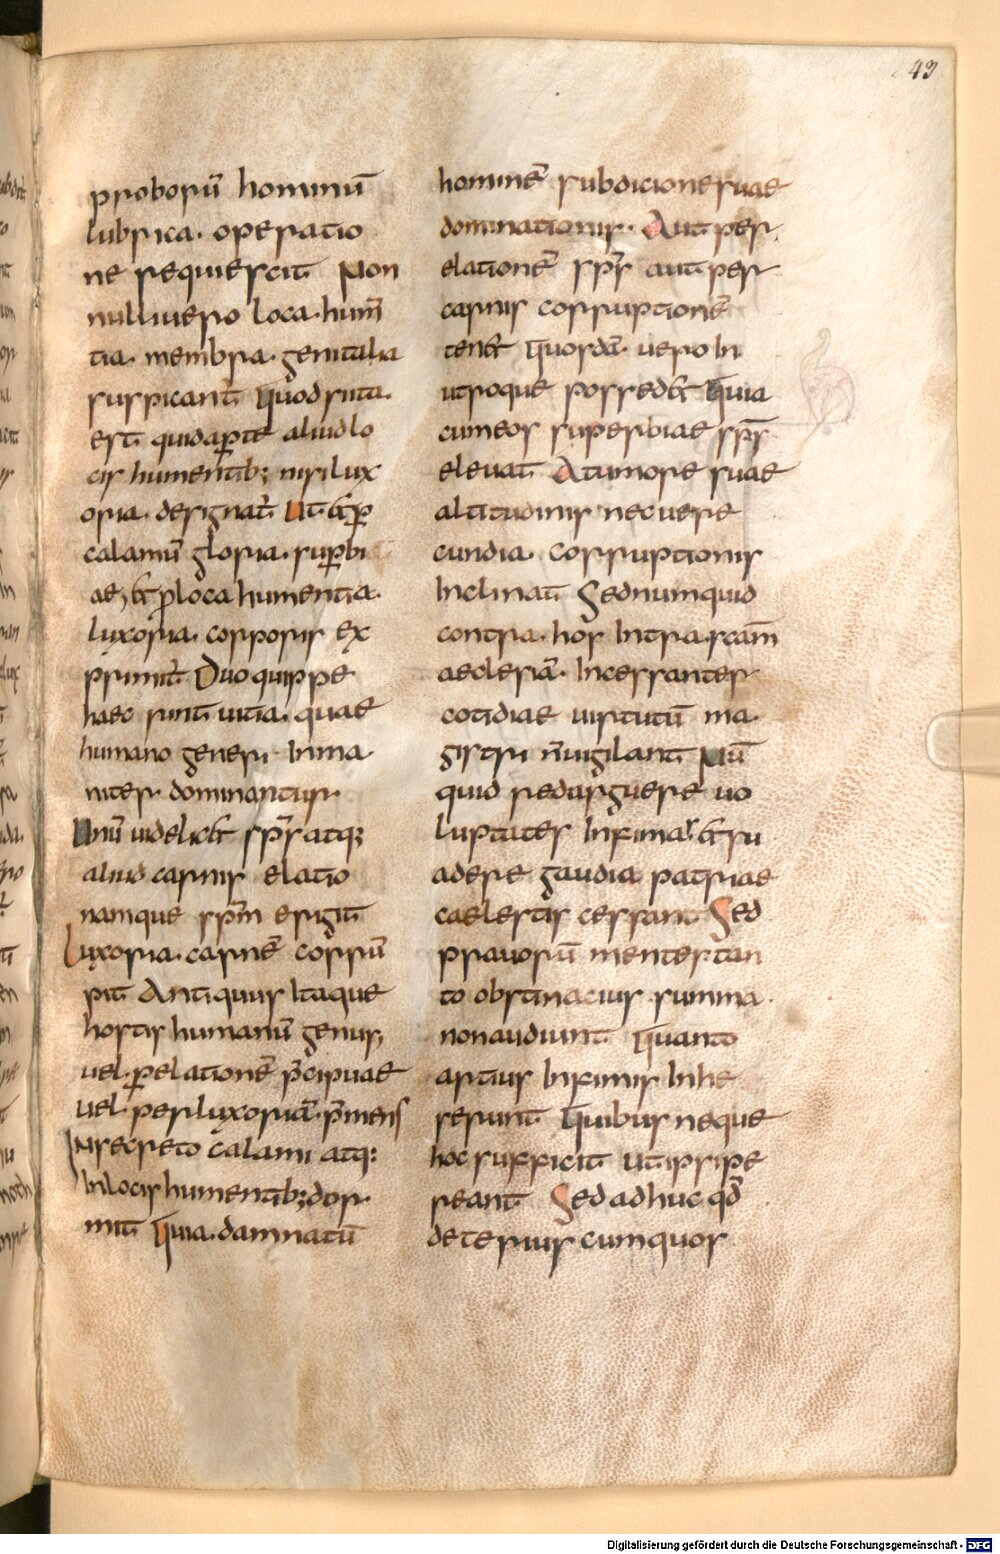 43
proborū hominū
lubrica. operatio
ne requiescit Non
nulli uero loca. hum̄
tia. membra. genitalia
suspicant̄ Quod si ita.
est quid aperte aliud lo
cis humentib; nisi lux
oria. designat̄ Ut & ꝑ
calamū gloria. suꝑbi
ae, & ꝑ loca humentia.
luxoria. corporis ex
primit̄ Duo quippe
haec sunt uitia. quae
humano generi inma
niter dominantur.
Unū uidelic& sp̄s atq;
aliud carnis elatio
namque sp̄m erigit
Luxoria. carnē corrū
pit Antiquus itaque
hostis humanū genus,
uel ꝑ elationē p̄cipuae
uel. per luxoriā. p̄mens
In secreto calami atq:
In locis humentib; dor
mit Quia. damnatū
hominē sub dicione suae
dominationis. Aut per
elationē sp̄s aut per
carnis corruptionē
ten& Quosdā. uero In
utroque possed& Quia
cum eos superbiae sp̄s
eleuat A tumore suae
altitudinis nec uere
cundia. corruptionis
Inclinat Sed numquid
contra. hos Intra. scam̄
aeclesiā. Incessanter
cotidiae uirtutū ma.
gistri n̄ uigilant Nū
quid redarguere uo
luptates Infimas. & su
adere gaudia patriae
caelestis cessant Sed
prauorū mentes tan
to obstinacius summa.
non audiunt Quanto
artius Infimis Inhe
rerunt Quibus neque
hoc sufficit ut ipsi pe
reant Sed adhuc qd̄
deterius cum quos
Digitalisierung gefördert durch die Deutsche Forschungsgemeinschaft - DFG